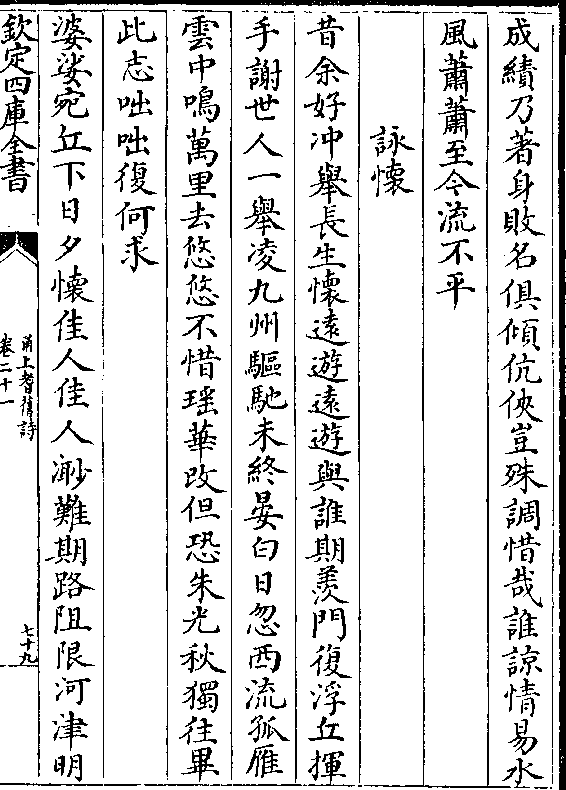 成績乃著身敗名俱傾伉俠豈殊調惜哉誰諒情易水
風蕭蕭至今流不平
詠懷
昔余好冲舉長生懷遠遊遠遊與誰期羨門復浮丘揮
手謝世人一舉凌九州驅馳未終晏白日忽西流孤雁
雲中鳴萬里去悠悠不惜瑶華改但恐朱光秋獨往畢
此志咄咄復何求
婆娑宛丘下日夕懷佳人佳人渺難期路阻限河津明
欽定四庫全書
甬上耆舊詩
卷二十一
七十九